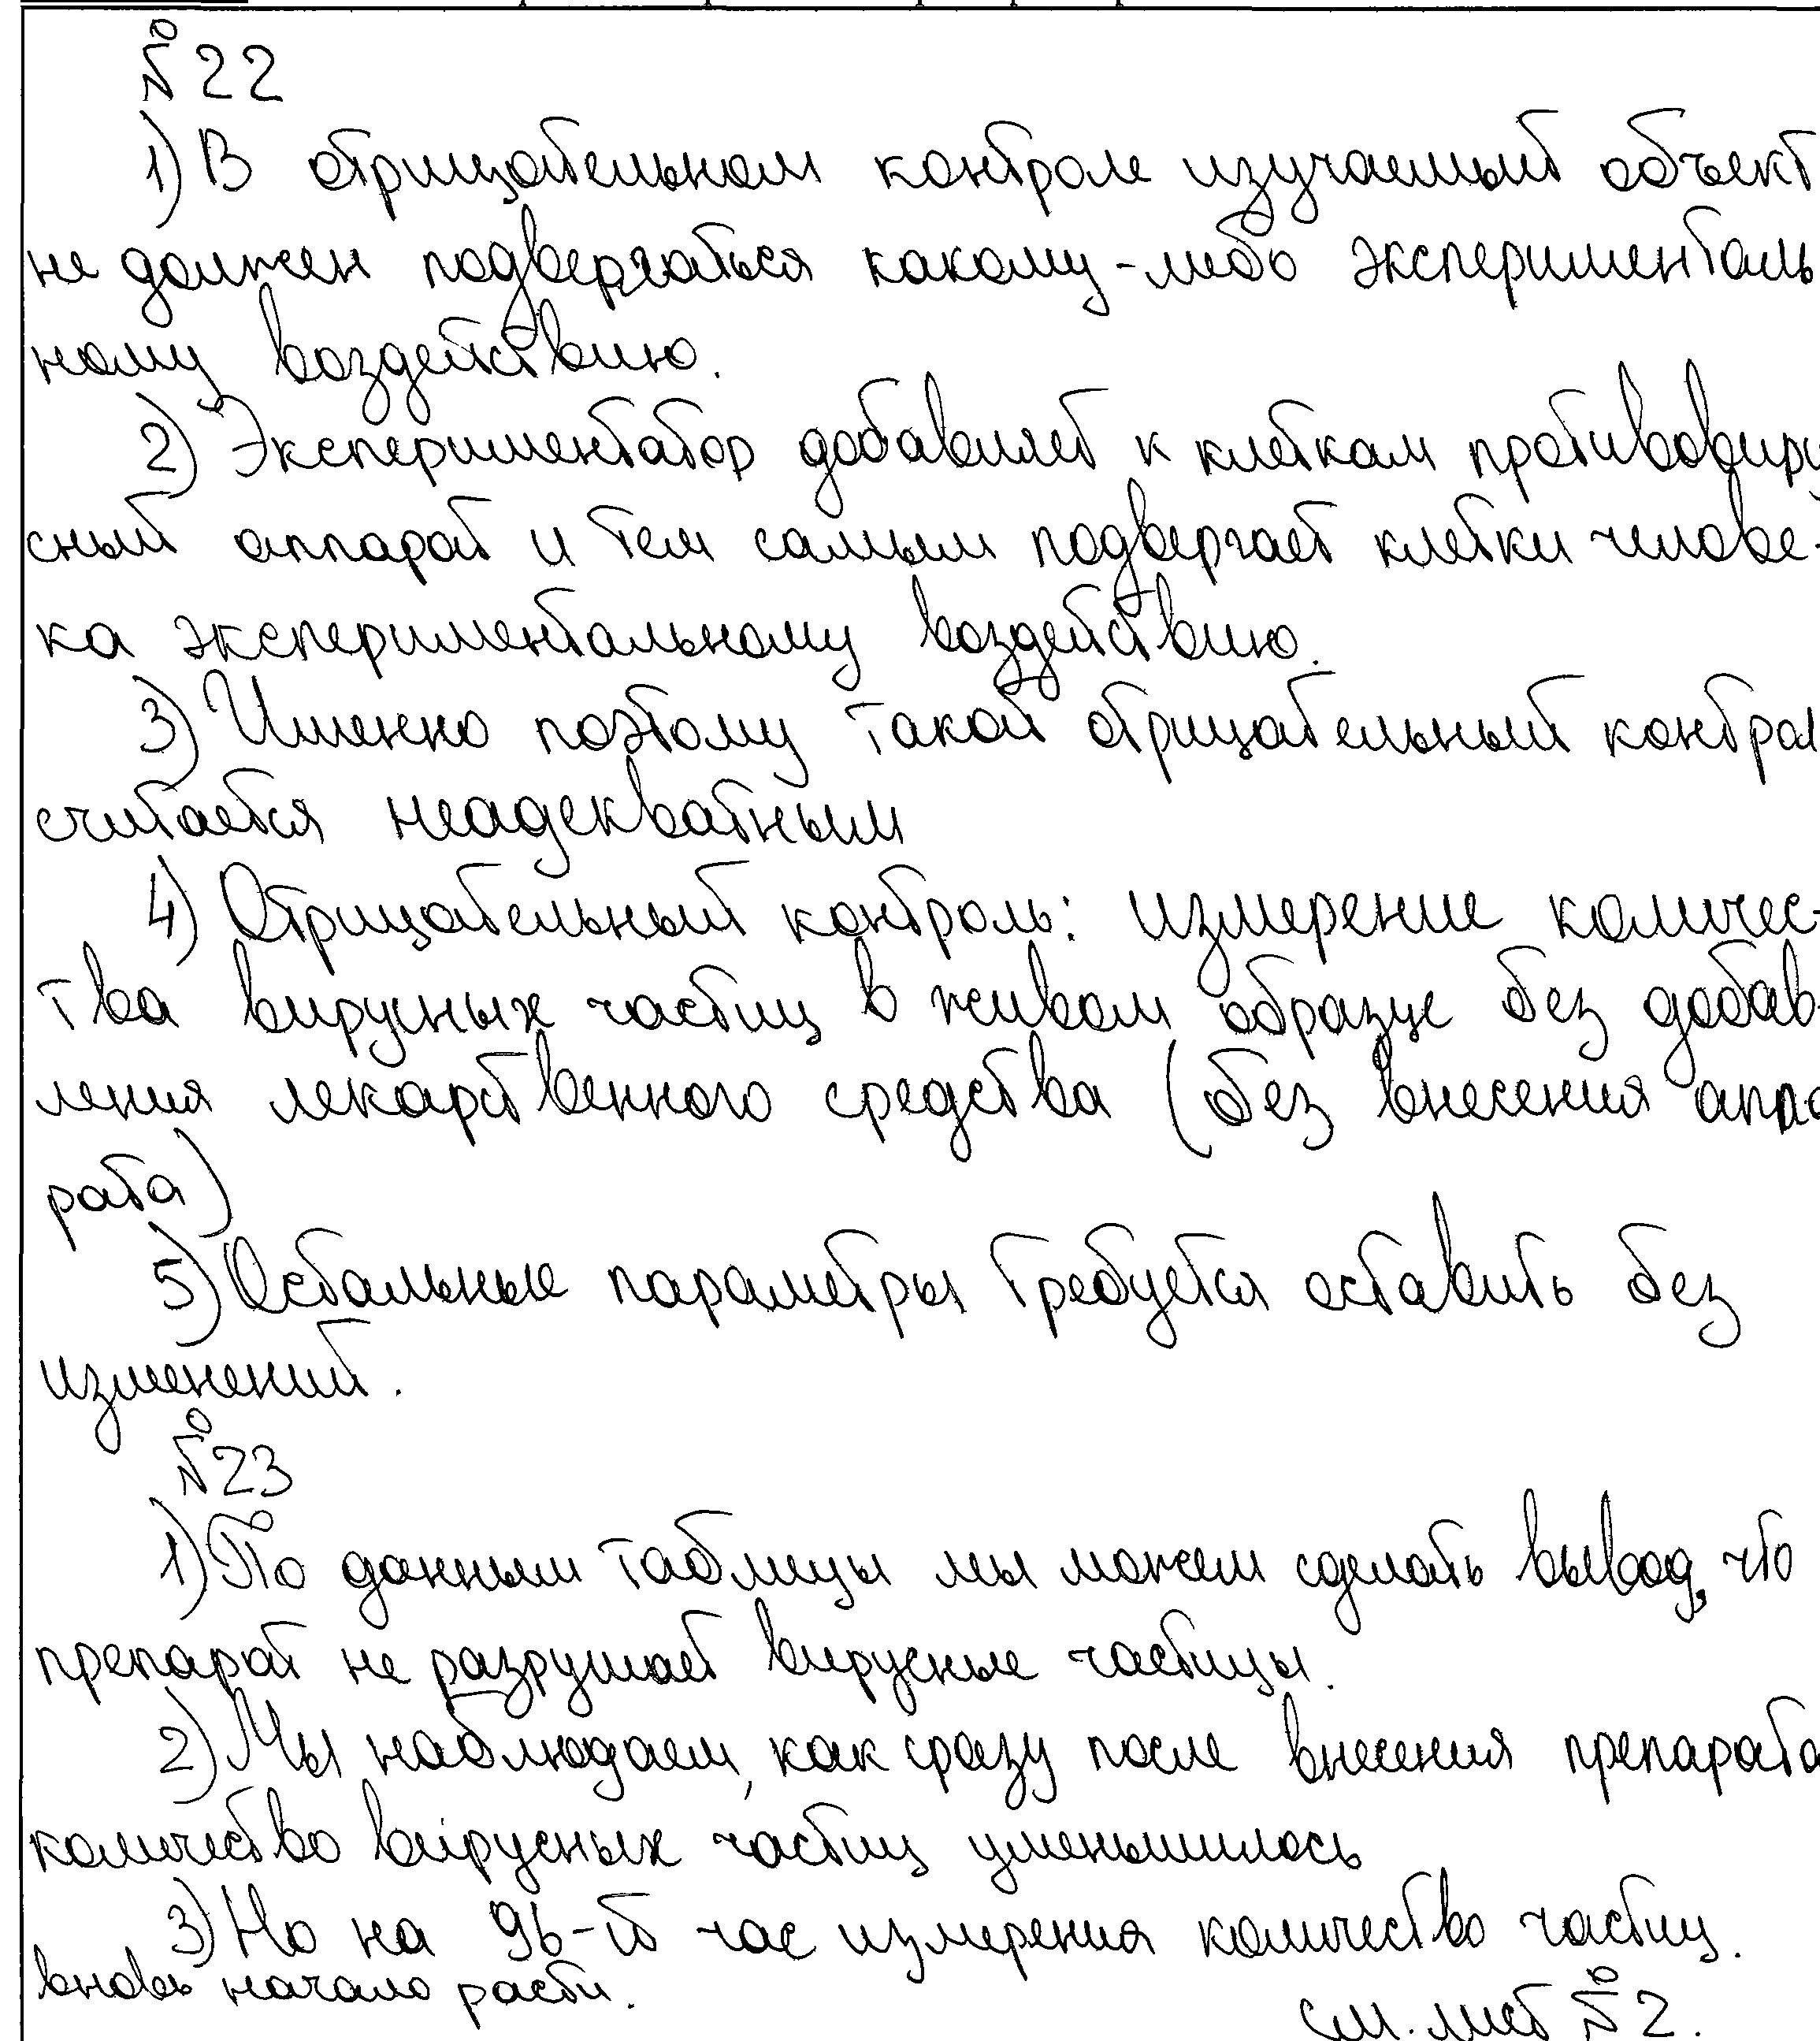 № 22
1) В отрицательном контроле изучаемый объект
не должен подвергаться какому-либо эксперименталь
ному воздействию.
2) Экспериментатор добавляет к клеткам противовиру
сный аппарат и тем самым подвергает клетки челове-
ка экспериментальному воздействию.
3) Именно поэтому такой отрицательный контрол
считается неадекватным
4) Отрицательный контроль: измерение количес-
тва вирусных частиц в живом образце без добав-
ления лекарственного средства (без внесения аппа
рата)
5) Остальные параметры требуется оставить без
изменений.
№ 23
1) По данным таблицы мы можем сделать вывод, что
препарат не разрушает вирусные частицы.
2) Мы наблюдаем, как сразу после внесения препарата
количество вирусных частиц уменьшилось
3) Но на 96-й час измерения количество частиц.
вновь начало расти.
см. лист № 2.